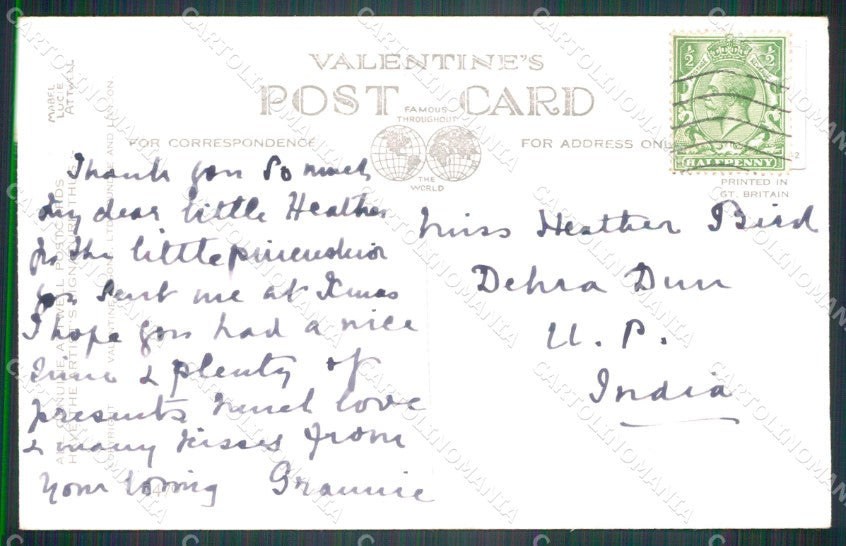 VALENTINE'S
POST CARD
FAMOUS
THROUGHOUT
THE
WORLD
FOR CORRESPONDENCE
FOR ADDRESS ONLY
PRINTED IN
GT. BRITAIN
MABEL
LUCIE
ATTWELL
½ ½
HALFPENNY
Thank you so much
My dear little Heather
for the little
you sent me at Xmas
I hope you had a nice
time & plenty of
presents much love
& many kisses from
Your loving Grannie
Miss Heather Bird
Dehra Dun
U. P.
India
CARTOLINOMANIA